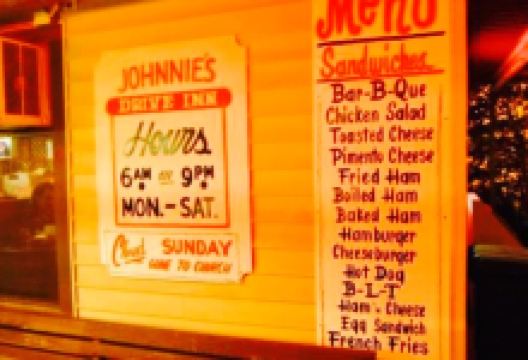 JOHNNIE'S
DRIVE INN
Hours
6 AM 9 PM
MON. - SAT.
Closed SUNDAY
GONE TO CHURCH
Menu
Sandwiches
Bar-B-Que
Chicken Salad
Toasted Cheese
Pimento Cheese
Fried Ham
Boiled Ham
Baked Ham
Hamburger
Cheeseburger
Hot Dog
B-L-T
Ham & Cheese
Egg Sandwich
French Fries